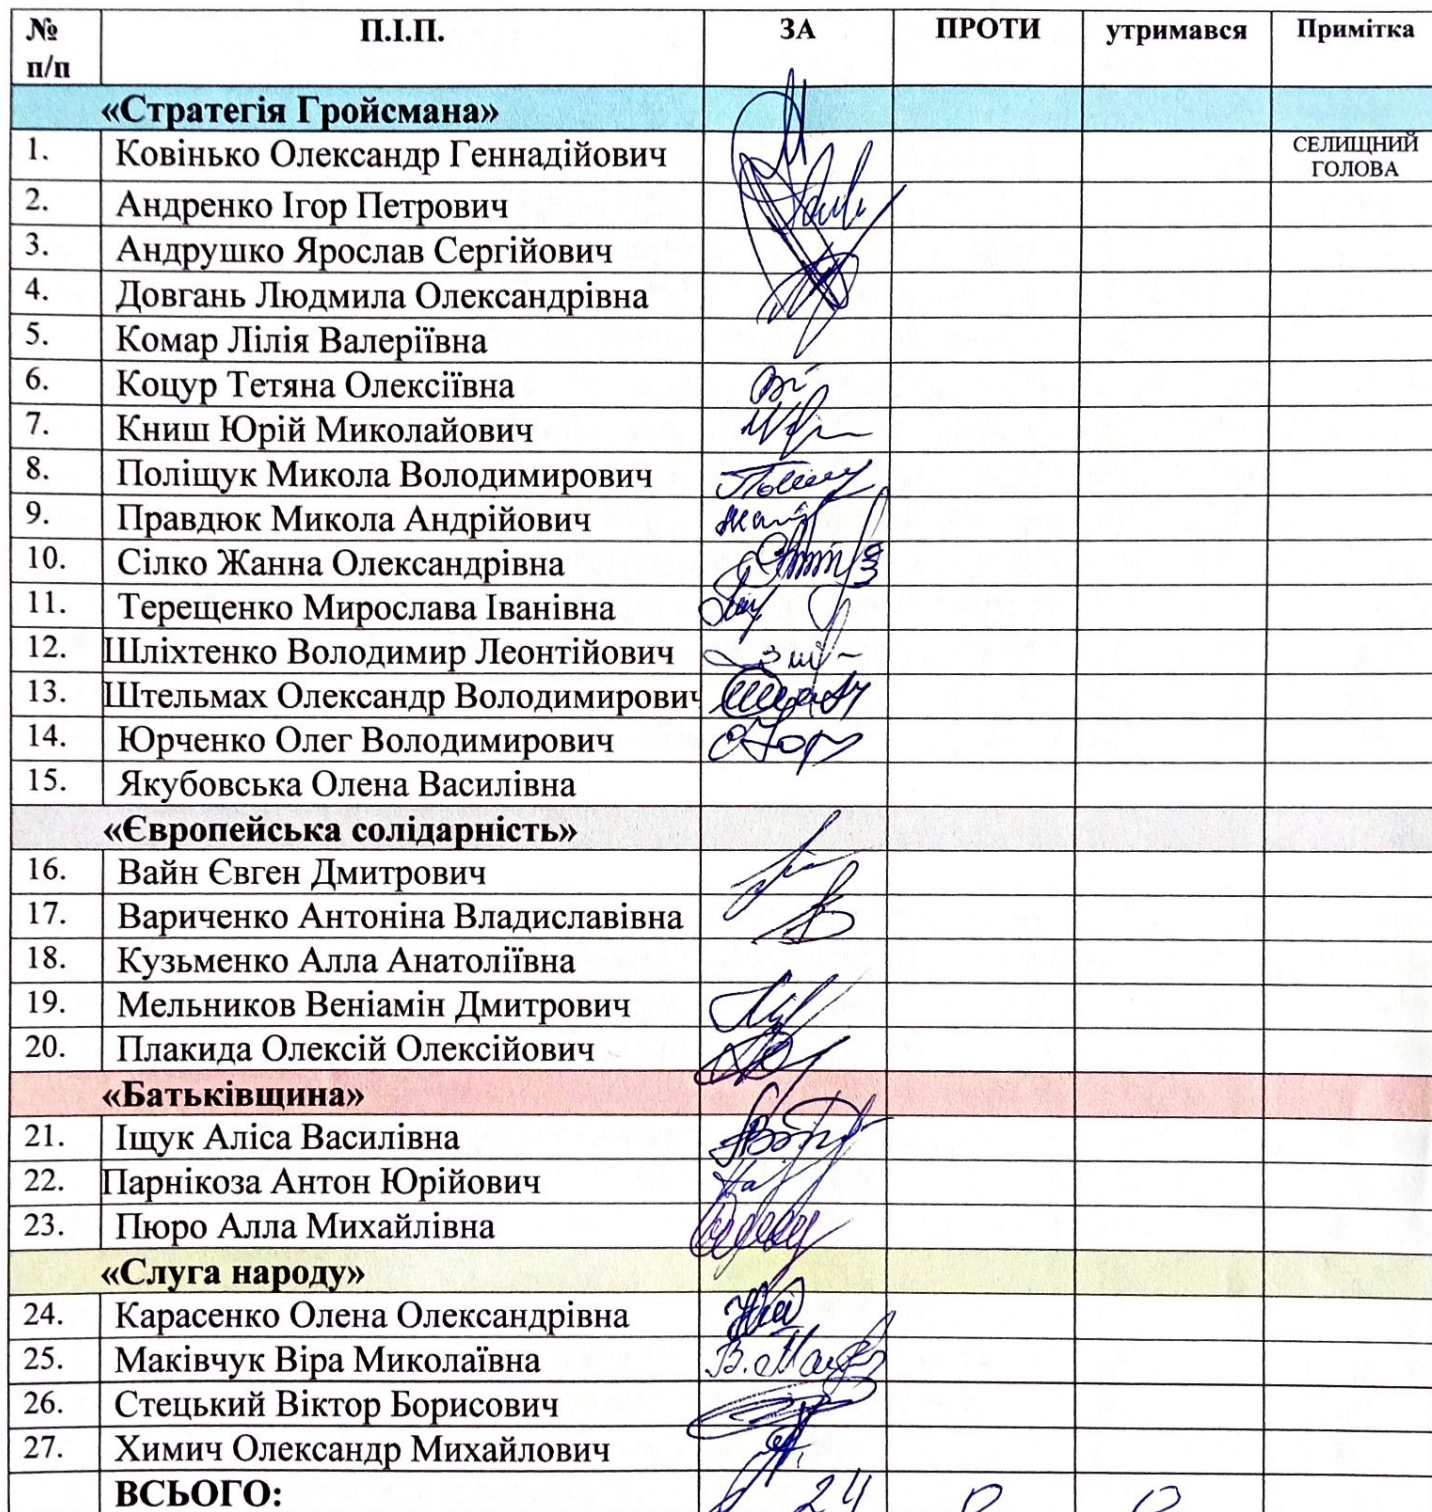 № п/п П.І.П. ЗА ПРОТИ утримався Примітка
«Стратегія Гройсмана»
1. Ковінько Олександр Геннадійович СЕЛИЩНИЙ ГОЛОВА
2. Андренко Ігор Петрович
3. Андрушко Ярослав Сергійович
4. Довгань Людмила Олександрівна
5. Комар Лілія Валеріївна
6. Коцур Тетяна Олексіївна
7. Книш Юрій Миколайович
8. Поліщук Микола Володимирович
9. Правдюк Микола Андрійович
10. Сілко Жанна Олександрівна
11. Терещенко Мирослава Іванівна
12. Шліхтенко Володимир Леонтійович
13. Штельмах Олександр Володимирович
14. Юрченко Олег Володимирович
15. Якубовська Олена Василівна
«Європейська солідарність»
16. Вайн Євген Дмитрович
17. Вариченко Антоніна Владиславівна
18. Кузьменко Алла Анатоліївна
19. Мельников Веніамін Дмитрович
20. Плакида Олексій Олексійович
«Батьківщина»
21. Іщук Аліса Василівна
22. Парнікоза Антон Юрійович
23. Пюро Алла Михайлівна
«Слуга народу»
24. Карасенко Олена Олександрівна
25. Маківчук Віра Миколаївна
26. Стецький Віктор Борисович
27. Химич Олександр Михайлович
ВСЬОГО: 24